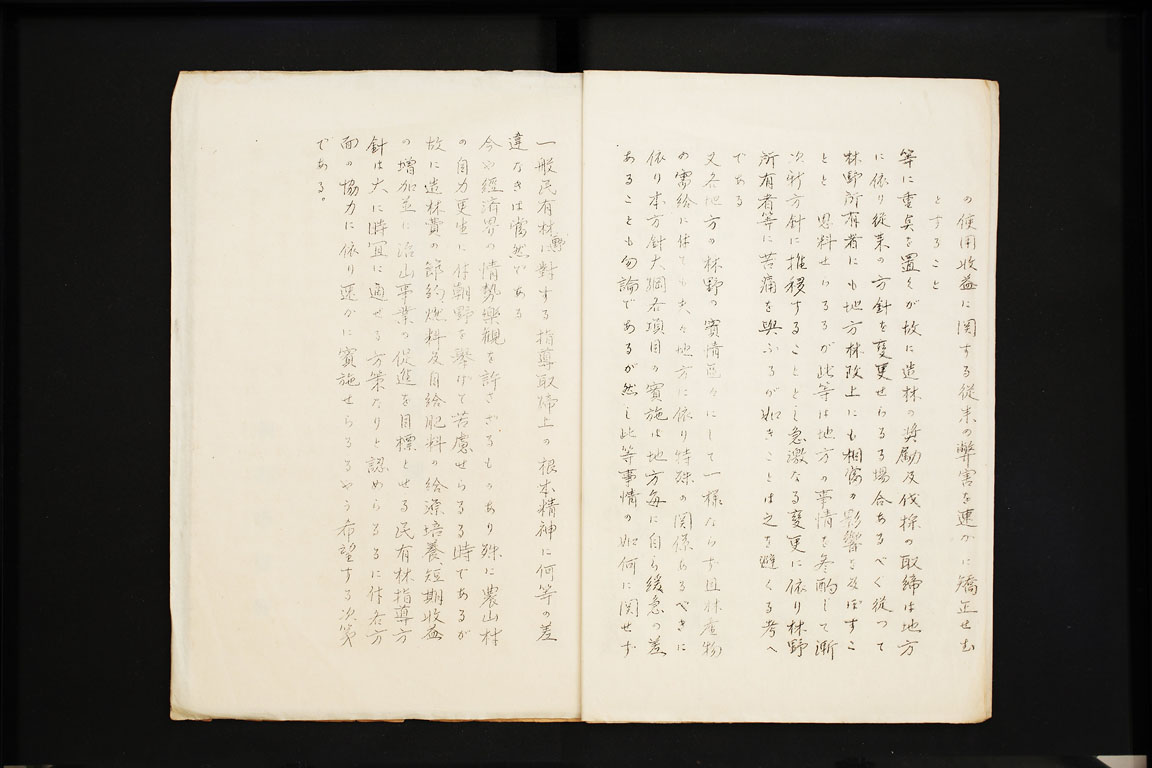 の使用収益に関する従来の弊害を速かに矯正せむ
とすること
等に重点を置くが故に造林の奨励及伐採の取締は地方
に依り従来の方針を変更せらるる場合あるべく従つて
林野所有者にも地方林政上にも相当の影響を及ぼすこ
とと思料せらるるが此等は地方の事情を参酌して漸
次新方針に推移することとし急激なる変更に依り林野
所有者等に苦痛を與ふるが如きことは之を避くる考へ
である
又各地方の林野の實情區々にして一様ならず且林産物
の需給に付ても夫々地方に依り特殊の関係あるべきに
依り本方針大綱各項目の實施は地方毎に自ら緩急の差
あることも勿論であるが然し此等事情の如何に関せず
一般民有林に對する指導取締上の根本精神に何等の差
違なきは當然である
今や經済界の情勢樂観を許さざるものあり殊に農山村
の自力更生に付朝野を挙げて苦慮せらるる時であるが
故に造林費の節約燃料及自給肥料の給源培養短期收益
の増加並に治山事業の促進を目標とせる民有林指導方
針は大に時宜に適せる方策なりと認めらるるに付各方
面の協力に依り速かに實施せらるるやう希望する次第
である。